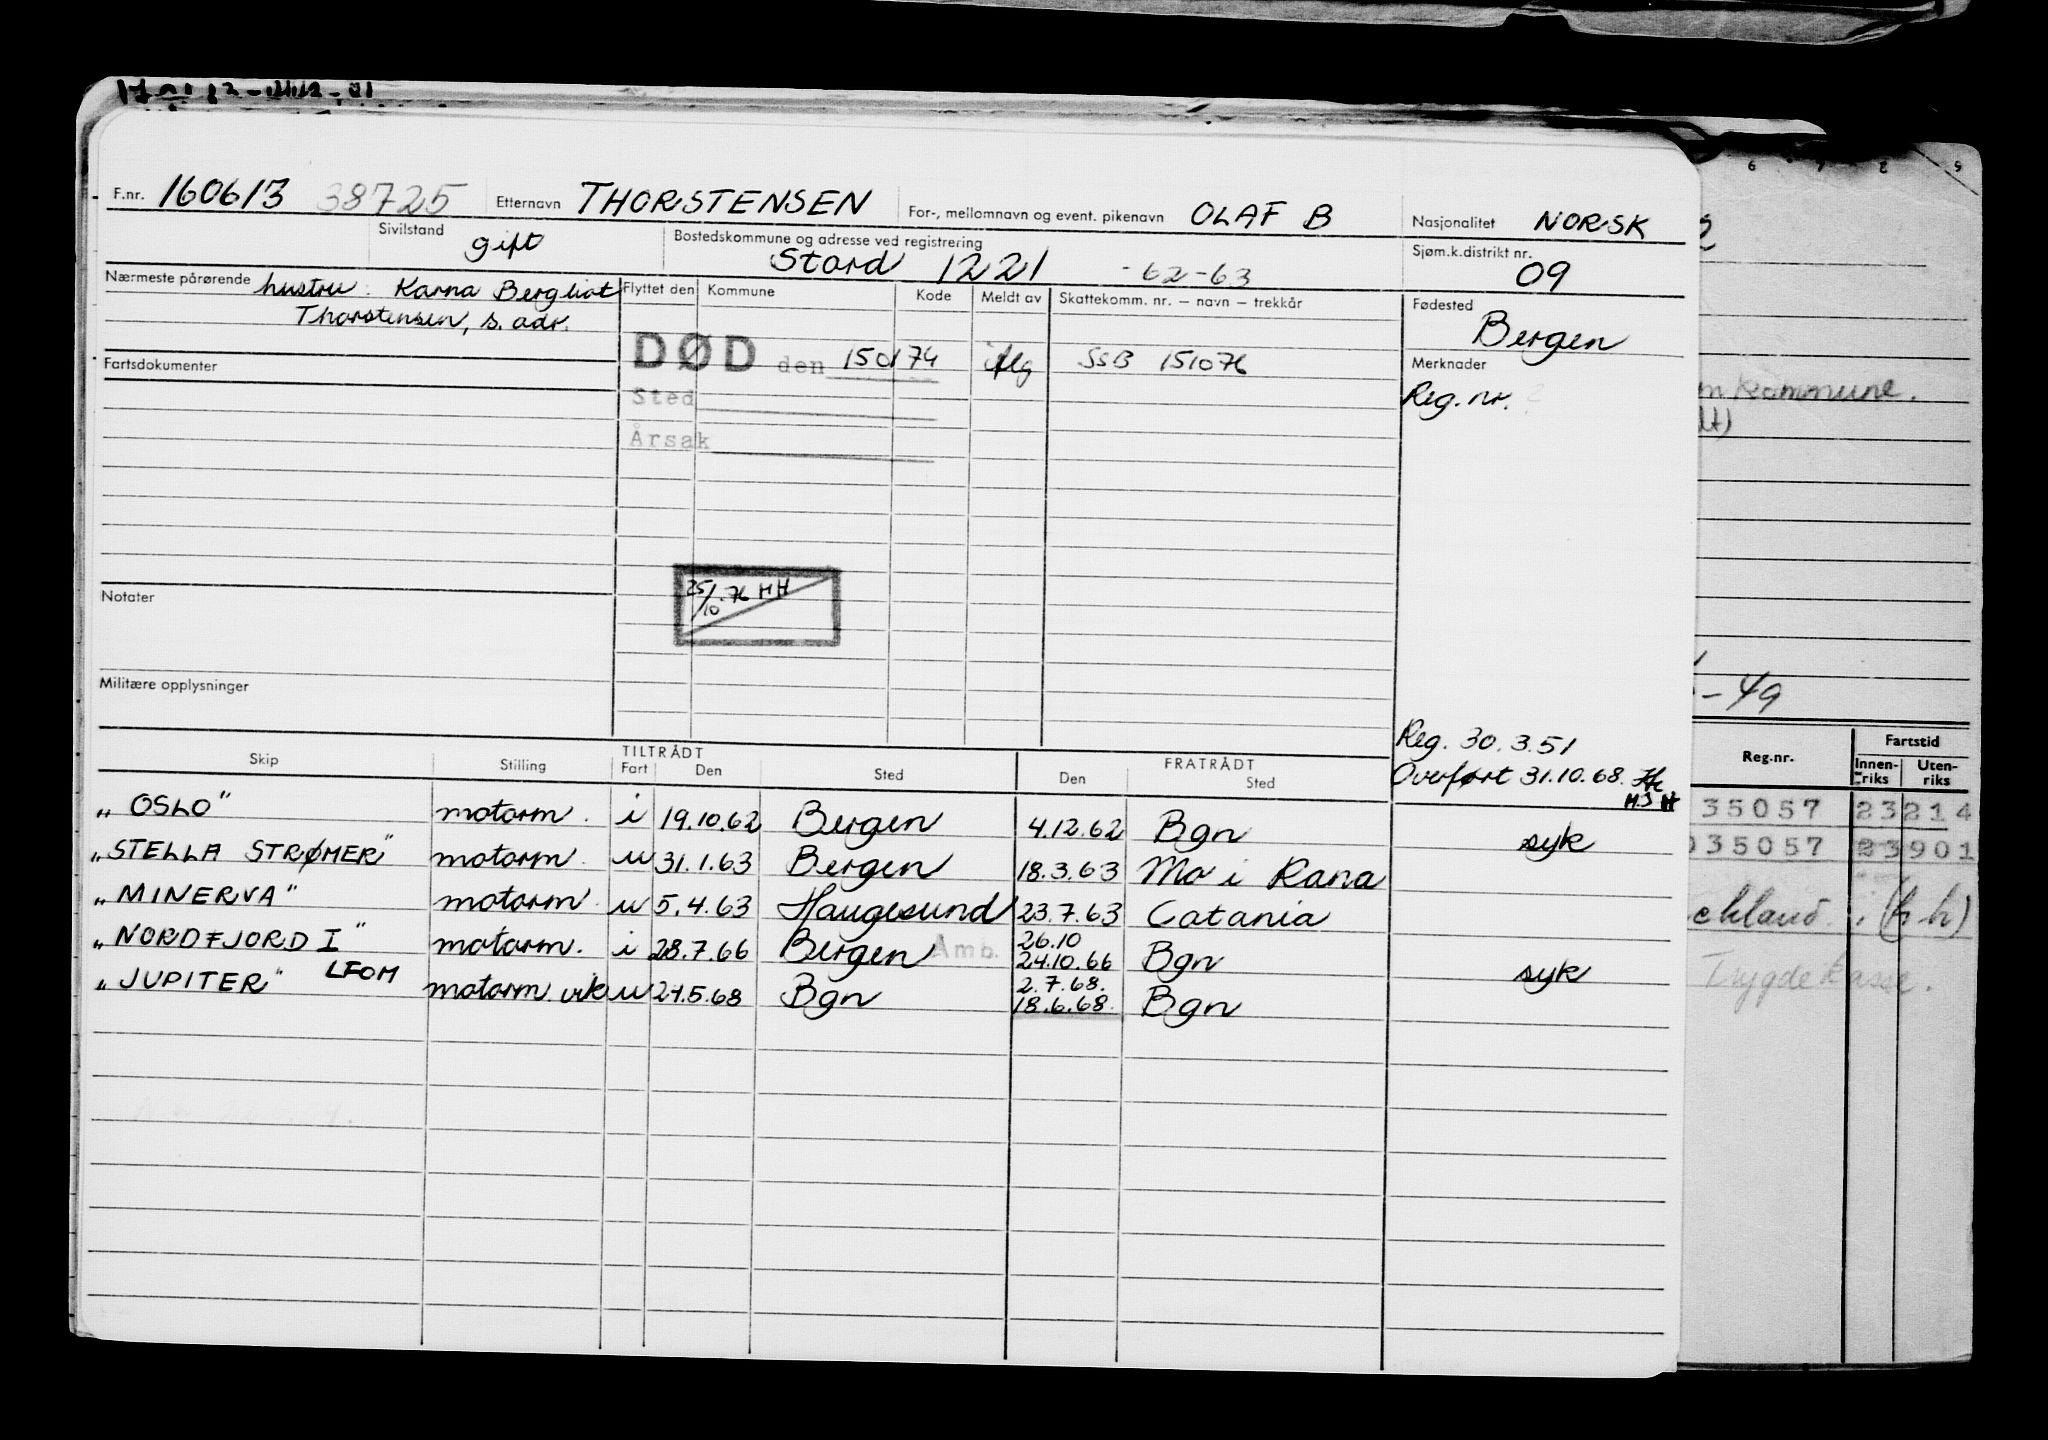 F.nr. 160613 38725 Etternavn THORSTENSEN For-, mellomnavn og event. pikenavn OLAF B Nasjonalitet NORSK
Sivilstand gift Bostedskommune og adresse ved registrering Stord 1221 -62-63 Sjøm.k.distrikt nr. 09
Nærmeste pårørende hustru: Karna Bergliot Flyttet den Kommune Kode Meldt av Skattekomm. nr. – navn – trekkår Fødested
Thorstensen, s. adr. Bergen
Fartsdokumenter DØD den 150174 SSB 151076 Merknader
Sted Reg. nr.
Årsak
25/10.76 HH
Notater
Militære opplysninger
Reg. 30.3.51
Overført 31.10.68.
HSH
Skip Stilling TILTRÅDT Fart Den Sted FRATRÅDT Den Sted
"OSLO" motorm. i 19.10.62 Bergen 4.12.62 Bgn syk
"STELLA STRØMER" motorm. u 31.1.63 Bergen 18.3.63 Mo i Rana
"MINERVA" motorm. u 5.4.63 Haugesund 23.7.63 Catania
"NORDFJORD I" motorm. i 28.7.66 Bergen Amb. 26.10 24.10.66 Bgn syk
"JUPITER" LFOM motorm. vik u 27.5.68 Bgn 2.7.68. 18.6.68. Bgn
6 7 8 9
m Kommune.
lt)
- 49
Reg.nr. Fartstid
Innen-riks Uten-riks
35057 23214
035057 23901
ckland. i (h h)
Trygdekasse.